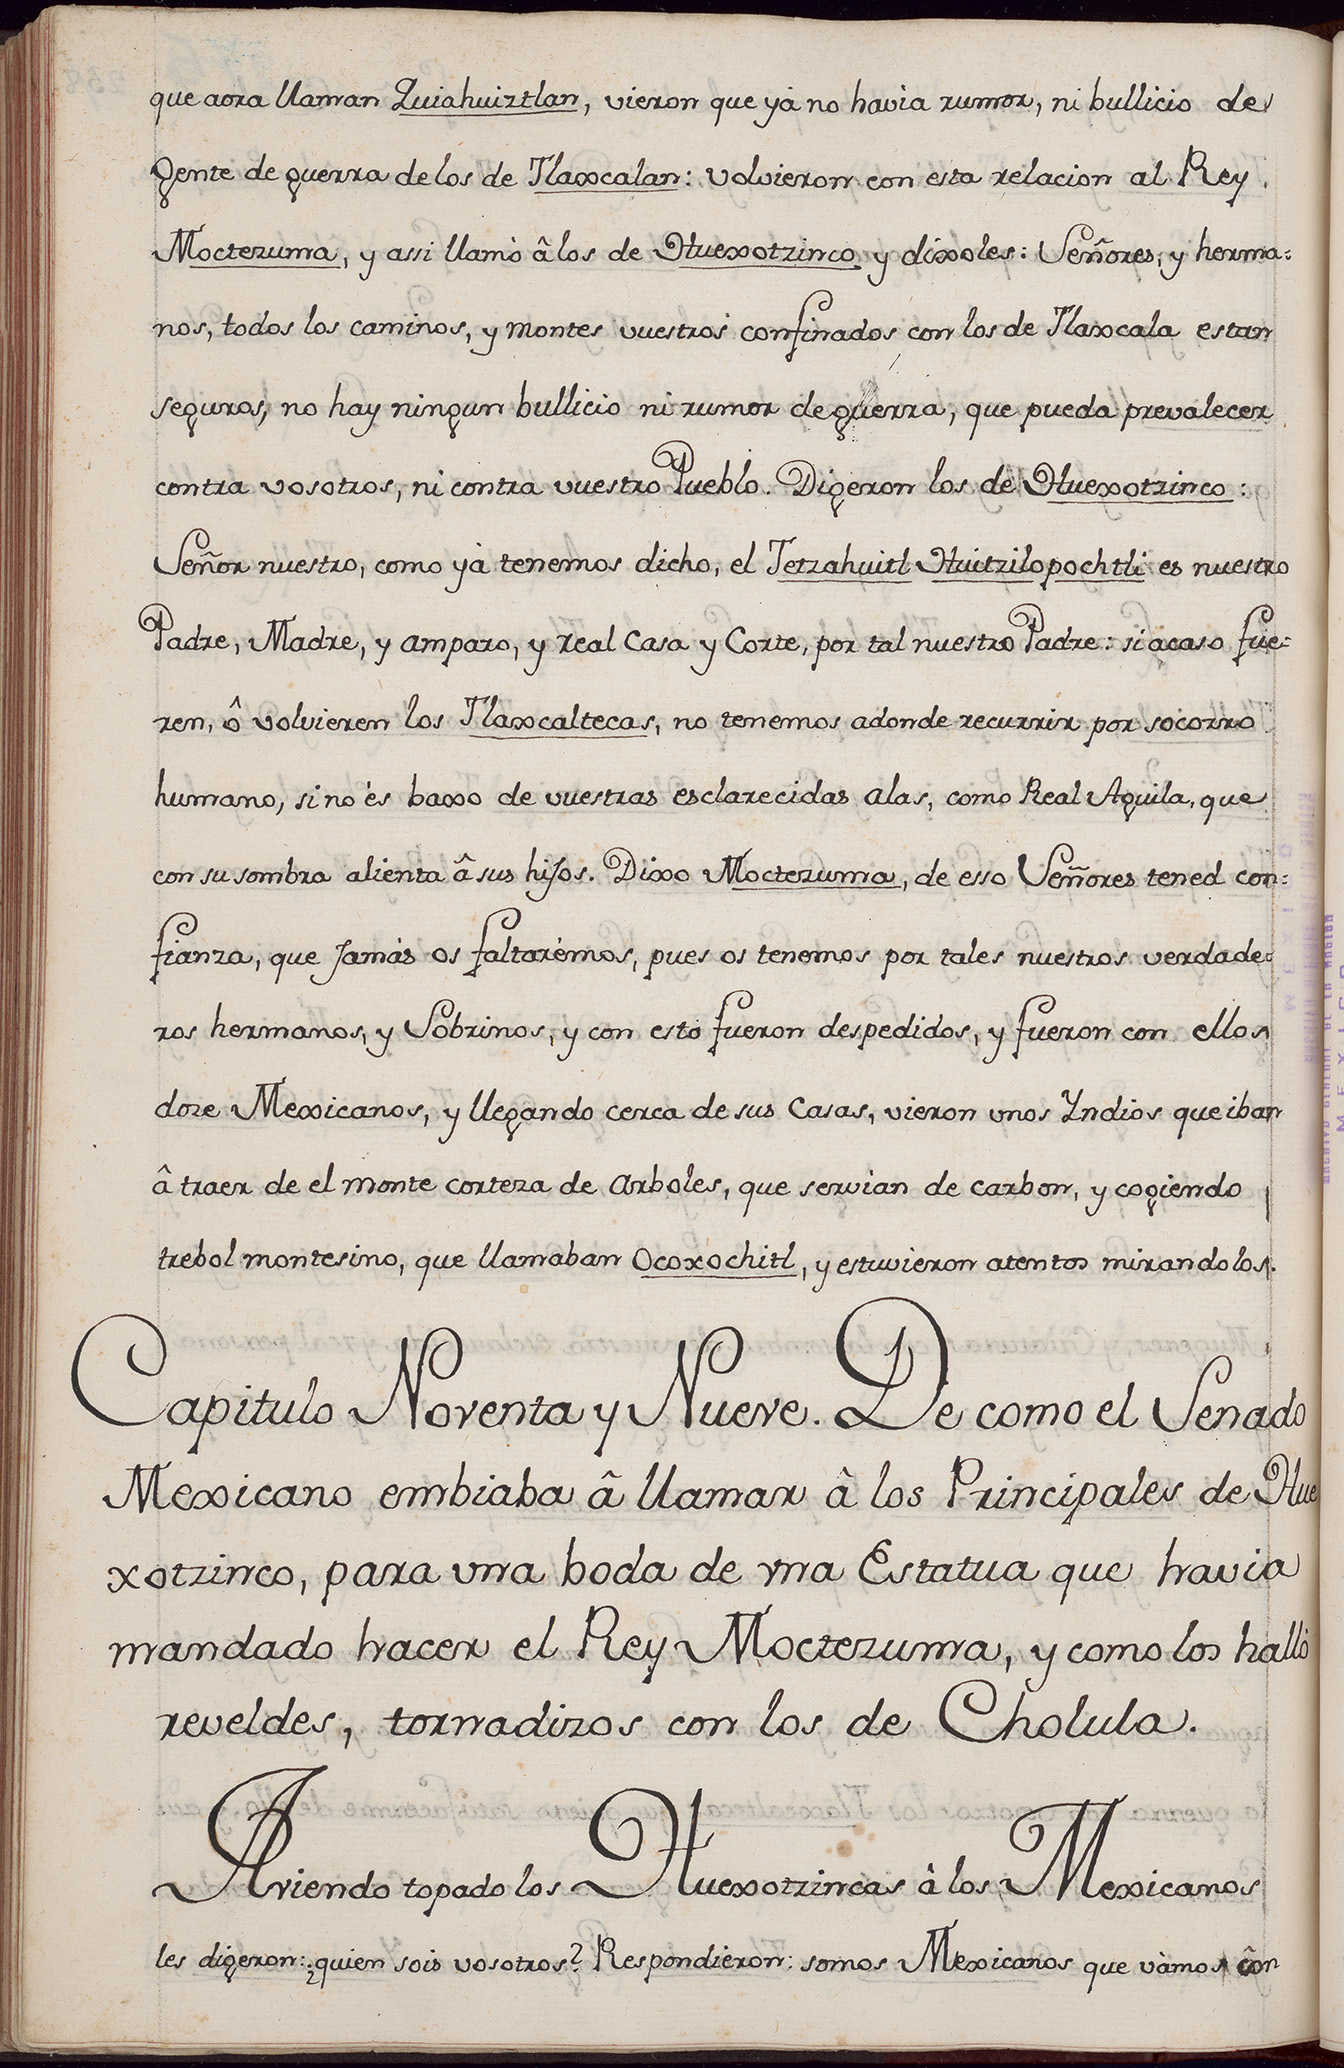 que aora llaman Quiahuiztlan, vieron que yà no havia rumor, ni bullicio de
gente de guerra de los de Tlaxcalan: volvieron con esta relacion al Rey
Moctezuma, y assi llamò â los de Huexotzinco y dixoles: Señores, y herma=
nos, todos los caminos, y montes vuestros confinados con los de Tlaxcala estan
seguros, no hay ningun bullicio ni rumor de guerra, que pueda prevalecer
contra vosotros, ni contra vuestro Pueblo. Digeron los de Huexotzinco:
Señor nuestro, como yà tenemos dicho, el Tetzahuitl Huitzilopochtli es nuestro
Padre, Madre, y amparo, y real Casa y Corte, por tal nuestro Padre: si acaso fue=
ren, ô volvieren los Tlaxcaltecas, no tenemos adonde recurrir por socorro
humano, si no ès baxo de vuestras esclarecidas alas, como Real Aguila, que
con su sombra alienta â sus hijos. Dixo Moctezuma, de esso Señores tened con=
fianza, que jamàs os faltarèmos, pues os tenemos por tales nuestros verdade=
ros hermanos, y Sobrinos, y con esto fueron despedidos, y fueron con ellos
doze Mexicanos, y llegando cerca de sus Casas, vieron unos Yndios que iban
â traer de el monte corteza de arboles, que servian de carbon, y cogiendo
trebol montesino, que llamaban Ocoxochitl, y estuvieron atentos mirandolos.
Capitulo Noventa y Nueve. De como el Senado
Mexicano embiaba â llamar â los Principales de Hue
xotzinco, para una boda de una Estatua que havia
mandado hacer el Rey Moctezuma, y como los hallò
reveldes, tornadizos con los de Cholula.
Aviendo topado los Huexotzincas â los Mexicanos
les digeron: ¿quien sois vosotros? Respondieron: somos Mexicanos que vàmos con